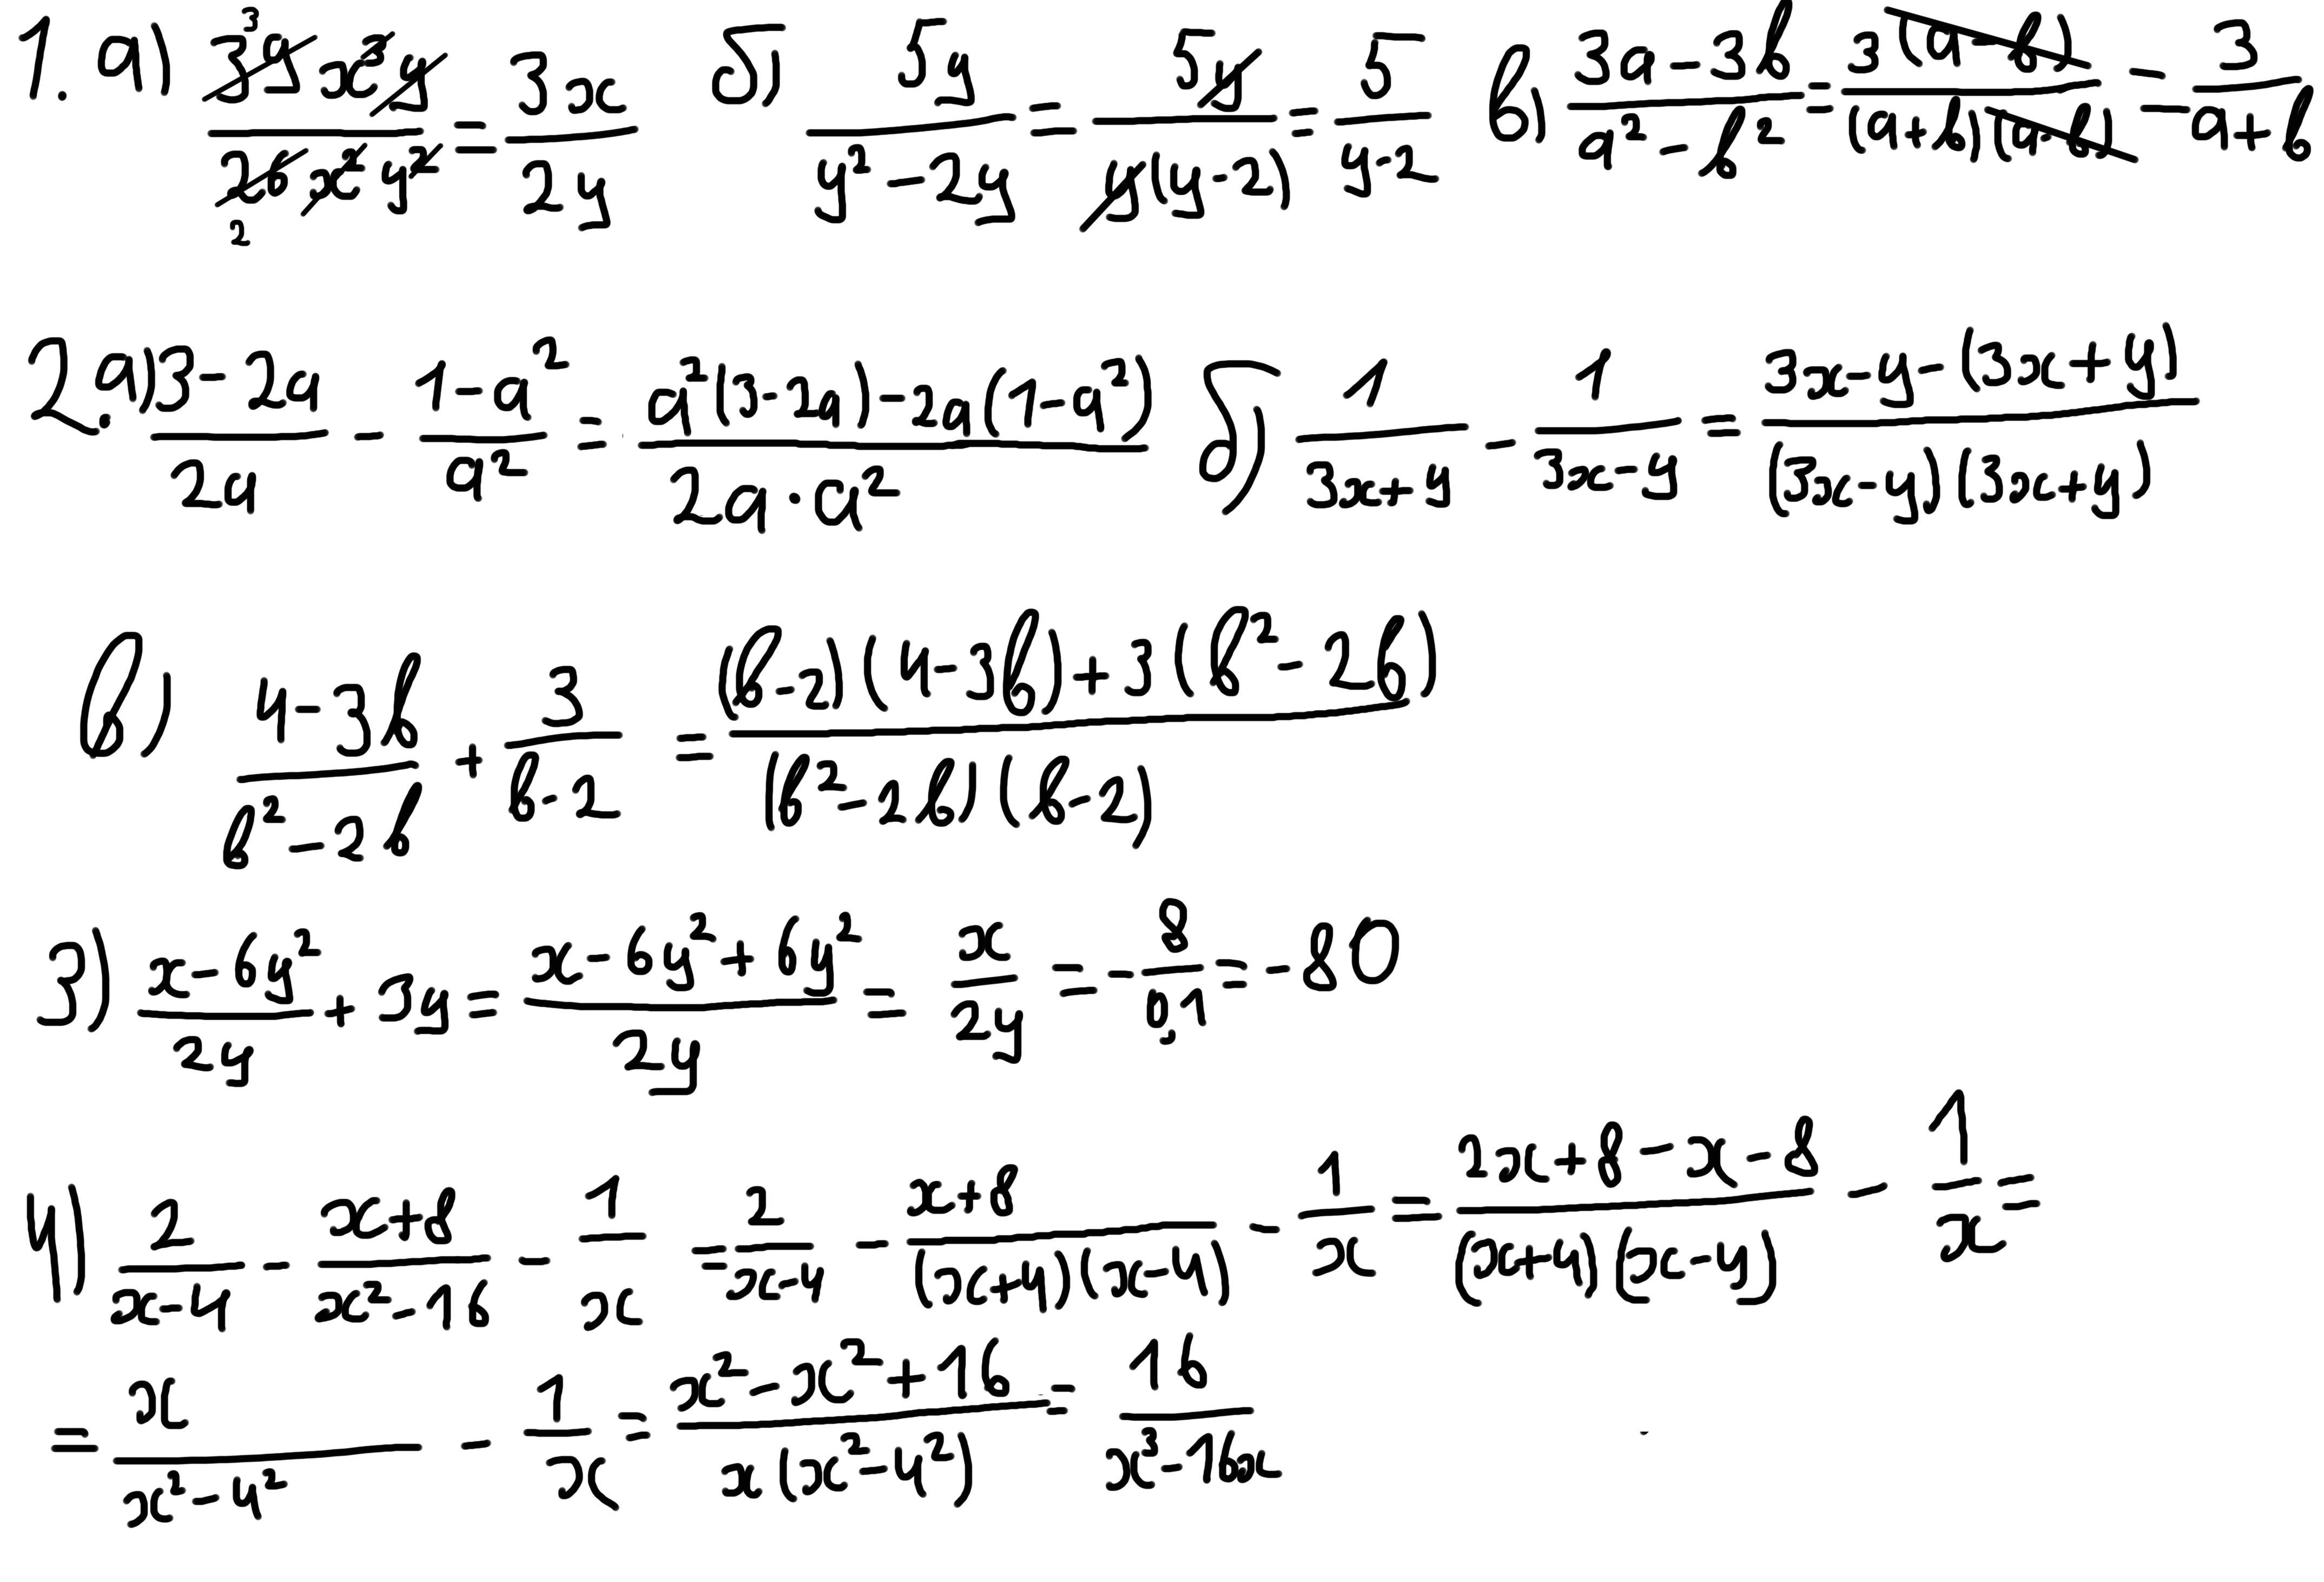 1. а) 39x³y/26x²y² = 3x/2y б) 5y/(y² - 2y) = 5y/(y(y-2)) = 5/(y-2) в) (3a - 3b)/(a² - b²) = 3(a-b)/((a+b)(a-b)) = 3/(a+b)
2. а) (3 - 2a)/2a - (1 - a²)/a² = (a²(3-2a) - 2a(1-a²))/(2a·a²) б) 1/(3x+y) - 1/(3x-y) = (3x - y - (3x+y))/((3x-y)(3x+y))
в) (4 - 3b)/(b² - 2b) + 3/(b-2) = ((b-2)(4-3b) + 3(b² - 2b))/((b² - 2b)(b-2))
3) (x - 6y²)/2y + 3y = (x - 6y² + 6y²)/2y = x/2y = -8/0,1 = -80
4) 2/(x-4) - (x+8)/(x²-16) - 1/x = 2/(x-4) - (x+8)/((x+4)(x-4)) - 1/x = (2x+8-x-8)/((x+4)(x-4)) - 1/x =
= x/(x² - 4²) - 1/x = (x² - x² + 16)/(x(x² - 4²)) = 16/(x³ - 16x)